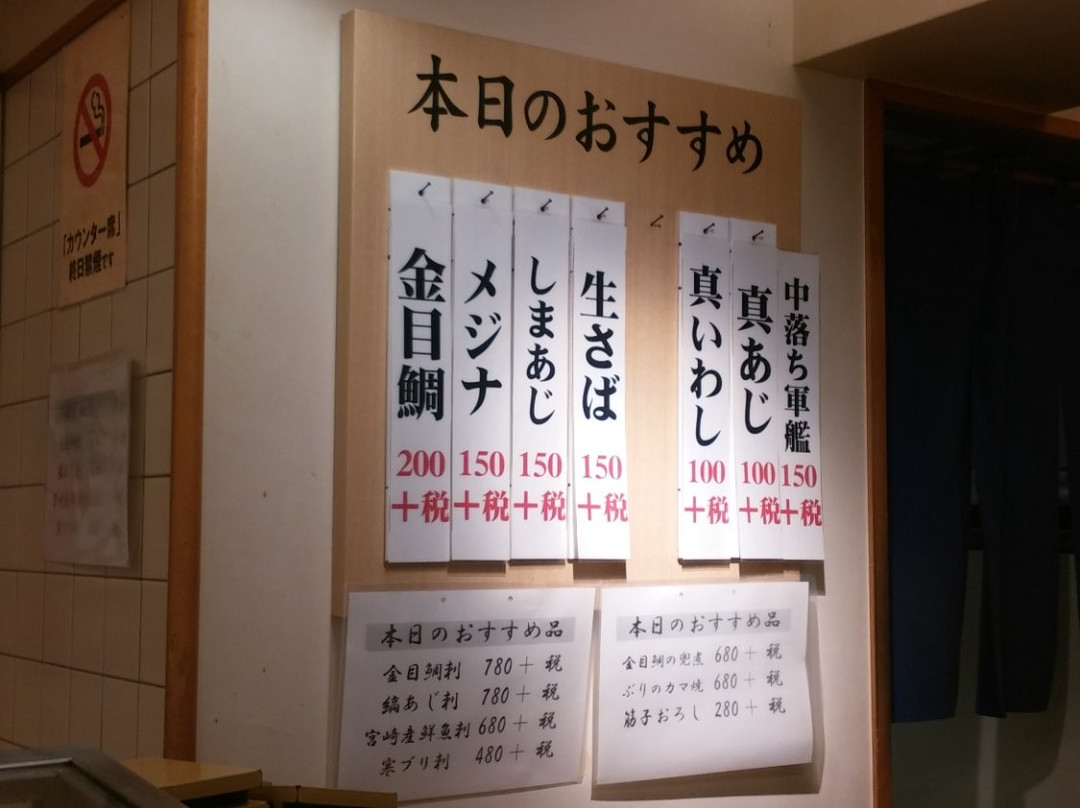 本日のおすすめ
金目鯛
200
+税
メジナ
150
+税
しまあじ
150
+税
生さば
150
+税
真いわし
100
+税
真あじ
100
+税
中落ち軍艦
150
+税
本日のおすすめ品
金目鯛刺 780+税
縞あじ刺 780+税
宮崎産鮮魚刺 680+税
寒ブリ刺 480+税
本日のおすすめ品
金目鯛の兜煮 680+税
ぶりのカマ焼 680+税
筋子おろし 280+税
「カウンター席」
終日禁煙です